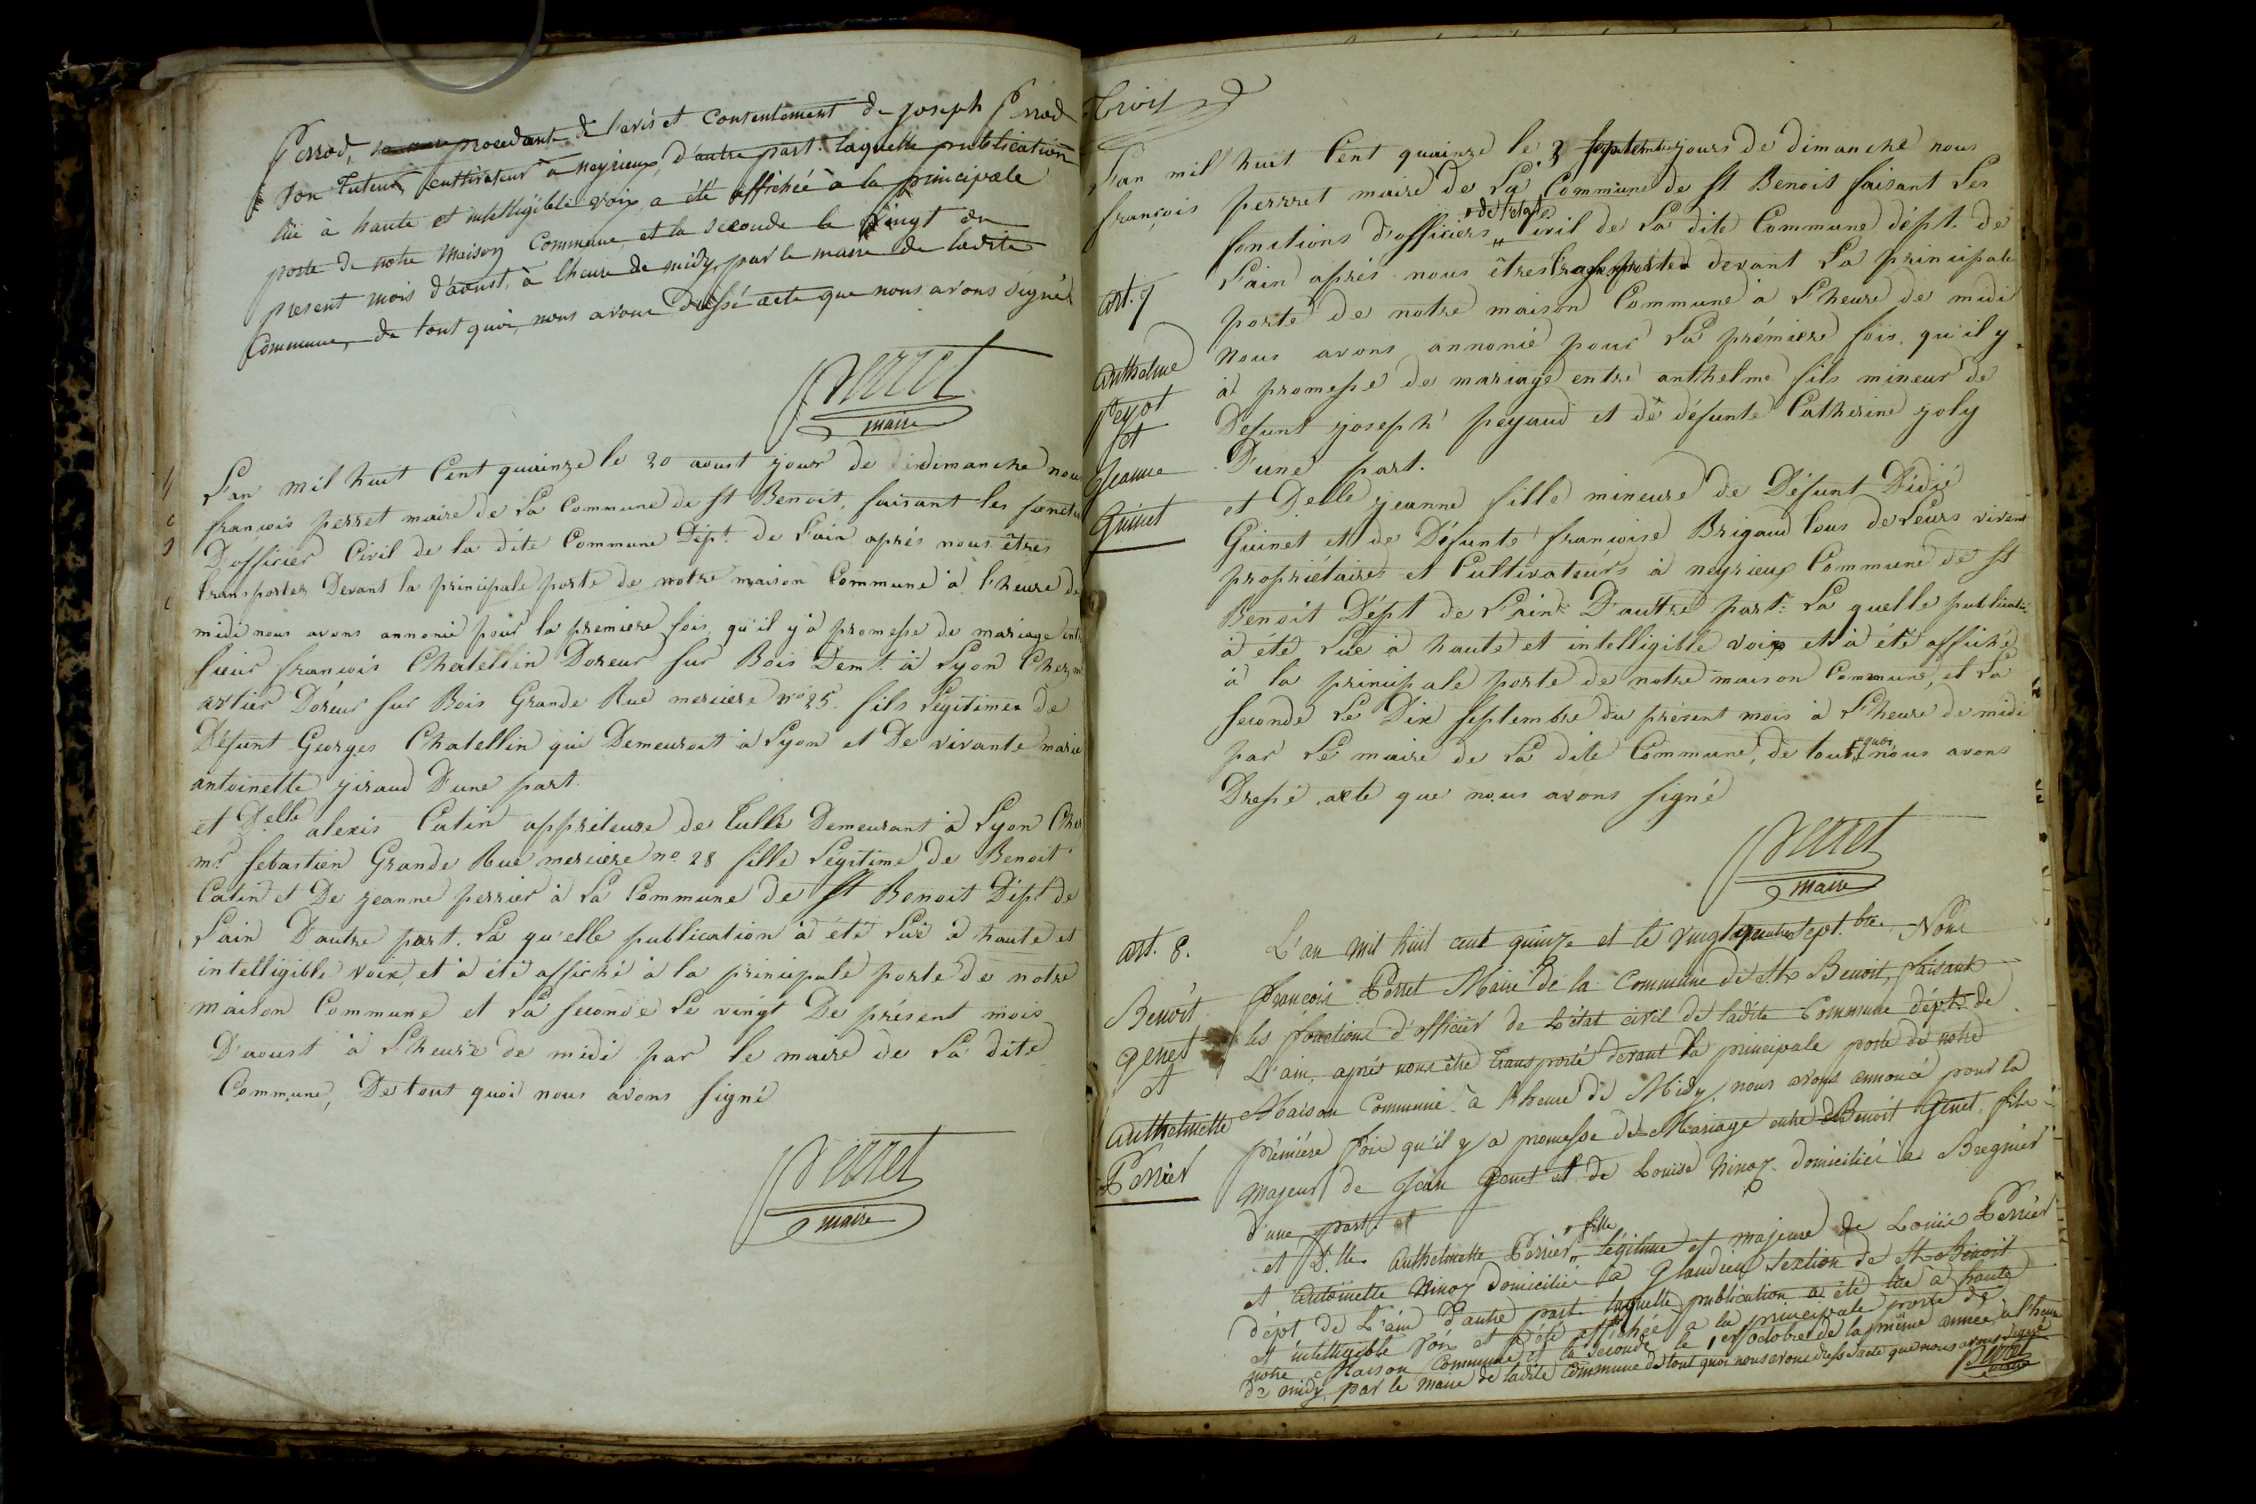 Perrod, procedante de l'avis et consentement de joseph Perrod
son Tuteur, cultivateur à neyrieux, d'autre part. laquelle publication
lüe à haute et intelligible voix, a été affichée à la principale
porte de notre Maison Commune, et la seconde le vingt du
present mois d'aoust, à l'heure de midy, par le maire de ladite
Commune, de tout quoi, nous avons dressé acte que nous avons signé
Perret
maire
L'an mil huit Cent quainze le 20 aoust jour de dimanche nous
françois perret maire de La Commune de St Benoit, faisant les
D'officier Civil de la dite Commune Dépt. de L'ain aprés nous êtres
transportez Devant la principale porte de notre maison Commune à l'heure de
midi nous avons annoncé pour la premiere fois, qu'il y à promesse de mariage
sieur françois Chatellin Doreur sur Bois Demt. à Lyon Chez
artier Doreur sur Bois Grande Rue merciere no 25. fils Legitimer de
Defunt Georges Chatellin qui Demeuroit à Lyon et De vivante marie
antoinette giraud D'une part.
et Delle alexis Catin appreteuse de tulle Demeurant à Lyon Chez
mr. sebastien Grande Rue merciere no. 28 fille Legitime de Benoit
Catin et De jeanne perrier à La Commune de St Benoit Dépt de
L'ain D'autre part. La qu'elle publication à été Luë à haute et
intelligible voix, et à été affiché à la principale porte de notre
maison Commune et La seconde Le vingt De présent mois
D'aoust à L'heure de midi par le maire de La dite
Commune, De tout quoi nous avons signé
Perret
maire
Trois
L'an mil huit Cent quainze le 3 septembre jours de dimanche nous
françois perrret maire de La Commune de St Benoit faisant Les
fonctions d'officiers de l'état civil de La dite Commune dépt. de
L'ain aprés nous êtres transportés devant La principale
art. 7
porte de notre maison Commune à L'heure de midi
Nous avons annoncé pour La prémiere fois, qu'il y
anthelme
Peyot
et
Jeanne
Guinet
à promesse de mariage entre anthelme fils mineur de
Defunt joseph peyaud et de défunte Catherine joly
D'une part.
et Delle jeanne fille mineure de Défunt Didié
Guinet et de Défunte françoise Brigaud tous de Leurs vivent
propriétaires et Cultivateurs à neyrieux Commune de St
Benoit Dépt de L'ain D'autre part. La quelle
à été Luë à haute et intelligible voix et à été affiché
à la principale porte de notre maison Commune, et La
seconde Le Dix septembre du présent mois à L'heure de midi
par Le maire de La dite Commune, de tout quoi nous avons
Dressé acte que nous avons signé
Perret
maire
art. 8.
L'an mil huit cent quinze et le vingtquatre sept.bre Nous
Benoit
Genet
et
Anthelmette
Perrier
François Perret Maire de la Commune de St Benoit, faisant
les fonctions d'officier de l'état civil de ladite Commune dépt. de
L'ain, aprés nous être transporté devant la principale porte de notre
Maison Commune à l'heure de Midy, nous avons annoncé pour la
prémiére fois qu'il y a promesse de Mariage entre Benoit Genet, fils
Majeur de Jean Genet et de Louise Ninoz domiciliés à Bregnier
d'une part et
et D.lle Anthelmette Perrier fille légitime et majeure de Louis Perrier
et Antoinette Ninoz domiciliée à Glandieu section de St Benoit
dépt de L'ain d'autre part laquelle publication a été lue à haute
et intelligible voix et a été affichée à la principale porte de
notre Maison Commune et la seconde le 1er octobre de la même année à l'heure
de midy, par le maire de ladite Commune de tout quoi nous avons dressé acte que nous avons signé
Perret
maire